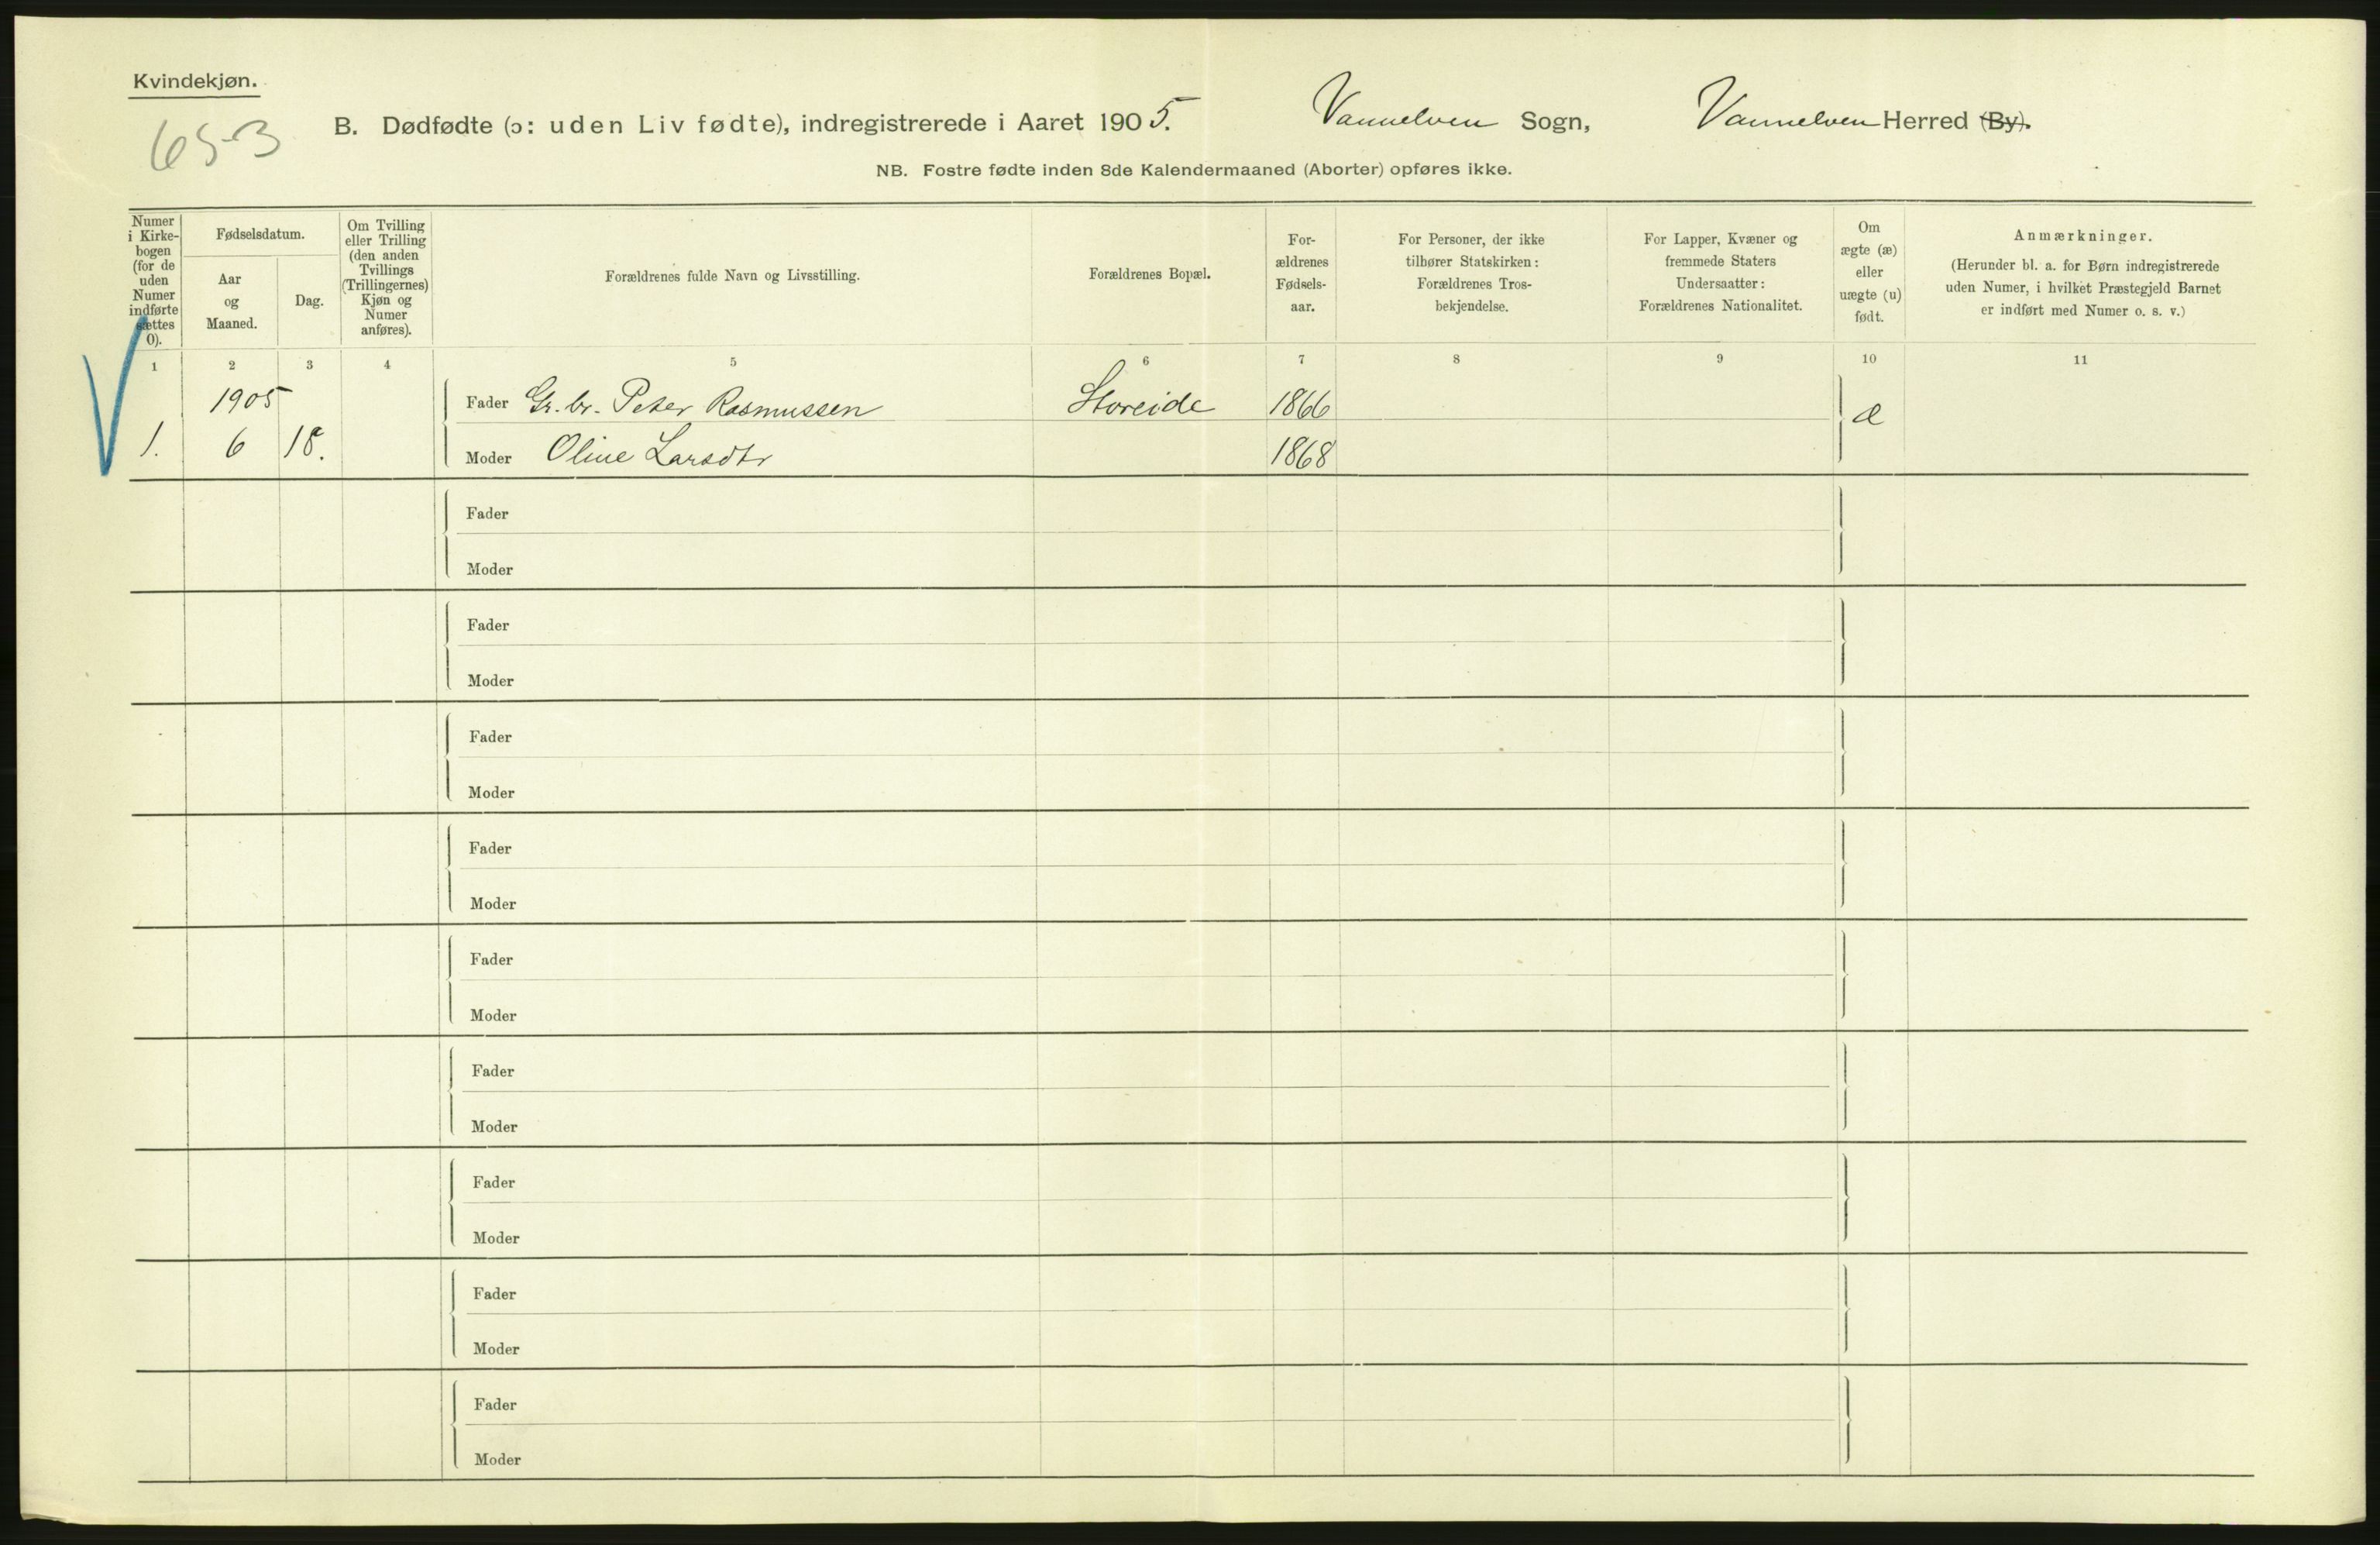 Kvindekjøn.
653
B. Dødfødte (ɔ: uden Liv fødte), indregistrerede i Aaret 1905. Vannelven Sogn, Vannelven Herred (By).
NB. Fostre fødte inden 8de Kalendermaaned (Aborter) opføres ikke.
Numer
i Kirke-
bogen
(for de
uden
Numer
indførte
sættes
0).
Fødselsdatum.
Aar
og
Maaned.
Dag.
Om Tvilling
eller Trilling
(den anden
Tvillings
(Trillingernes)
Kjøn og
Numer
anføres).
Forældrenes fulde Navn og Livsstilling.
Forældrenes Bopæl.
For-
ældrenes
Fødsels-
aar.
For Personer, der ikke
tilhører Statskirken:
Forældrenes Tros-
bekjendelse.
For Lapper, Kvæner og
fremmede Staters
Undersaatter:
Forældrenes Nationalitet.
Om
ægte (æ)
eller
uægte (u)
født.
Anmærkninger.
(Herunder bl. a. for Børn indregistrerede
uden Numer, i hvilket Præstegjeld Barnet
er indført med Numer o. s. v.)
1 2 3 4 5 6 7 8 9 10 11
1905 Fader Gr. br. Peter Rasmussen Storeide 1866 æ
1. 6 18. Moder Oline Larsdtr 1868
Fader
Moder
Fader
Moder
Fader
Moder
Fader
Moder
Fader
Moder
Fader
Moder
Fader
Moder
Fader
Moder
Fader
Moder